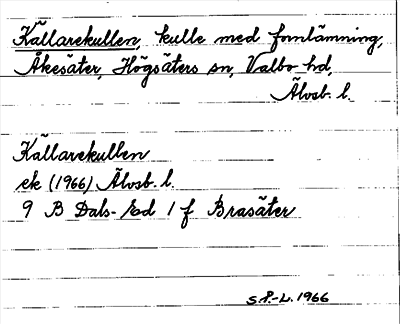 Källarekullen, kulle med fornlämning,
Åkesäter, Högsäters sn, Valbo hd,
Älvsb. l.
Källarekullen
ek (1966) Älvsb. l.
9 B Dals-Ed 1 f Brasäter
S.P.-L. 1966